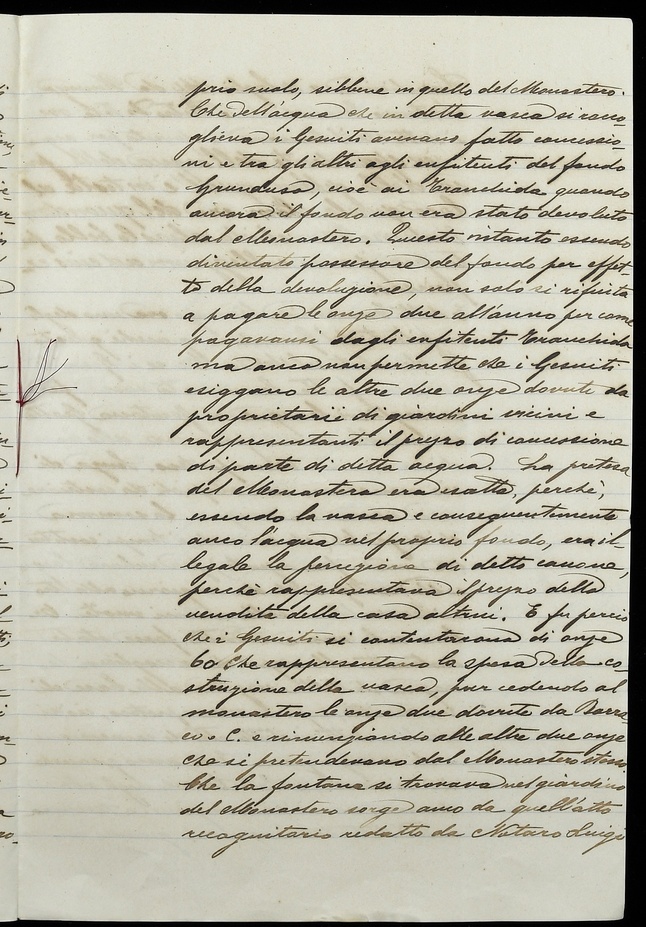 prio suolo, sibbene in quello del Monastero.
Che dell'acqua che in detta vasca si racco-
glieva i Gesuiti avevano fatto concessio-
ni e tra gli altri agli enfiteuti del fondo
cioè ai Tranchida quando
ancora il fondo non era stato devoluto
dal Monastero. Questo intanto essendo
diventato possessore del fondo per effet-
to della devoluzione, non solo si rifiuta
a pagare le onze due all'anno per come
pagavansi dagli enfiteuti Tranchida
ma anco non permette che i Gesuiti
esiggano le altre due onze dovute da
proprietarii di giardini vicini e
rappresentanti il prezzo di concessione
di parte di detta acqua. La pretesa
del Monastero era esatta, perchè,
essendo la vasca e conseguentemente
anco l'acqua nel proprio fondo, era il-
legale la percezione di detto canone,
perchè rappresentava il prezzo della
vendita della cosa altrui. E fu perciò
che i Gesuiti si contentarono di onze
60 che rappresentano la spesa della co-
struzione della vasca, pur cedendo al
monastero le onze due dovute da Barra-
co e C. e rinunziando alle altre due onze
che si pretendevano dal Monastero stesso.
Che la fontana si trovava nel giardino
del Monastero sorge anco da quell'atto
recognitorio redatto da Notaro Luigi